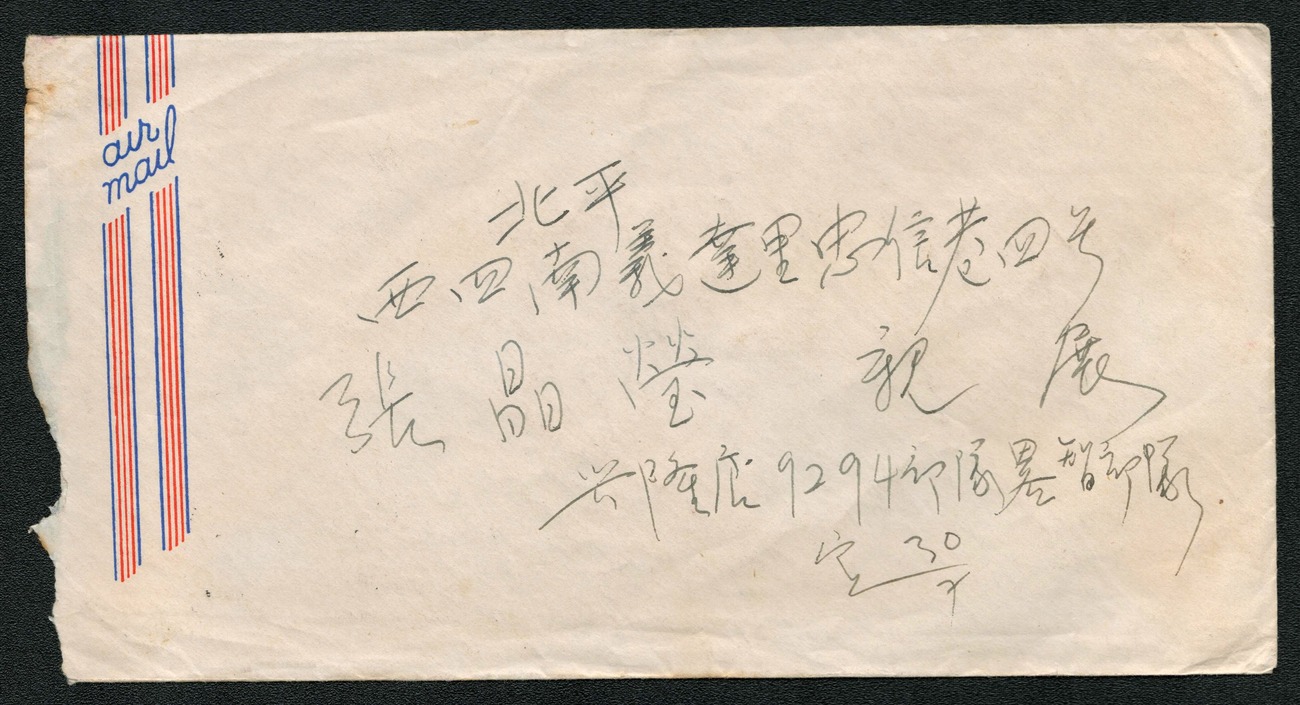 air
mail
北平
西四南義達里忠信巷四号
張晶瑩 親展
兴隆店9294部隊墨智部隊
定 30